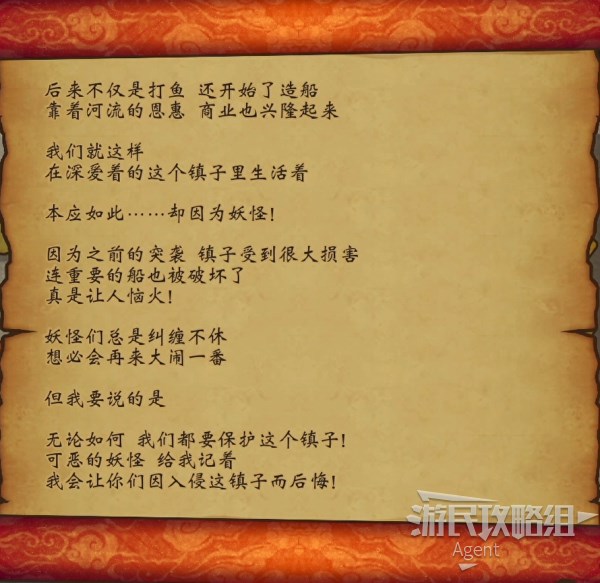 后来不仅是打鱼 还开始了造船
靠着河流的恩惠 商业也兴隆起来
我们就这样
在深爱着的这个镇子里生活着
本应如此……却因为妖怪!
因为之前的突袭 镇子受到很大损害
连重要的船也被破坏了
真是让人恼火!
妖怪们总是纠缠不休
想必会再来大闹一番
但我要说的是
无论如何 我们都要保护这个镇子!
可恶的妖怪 给我记着
我会让你们因入侵这镇子而后悔!
游民攻略组
Agent